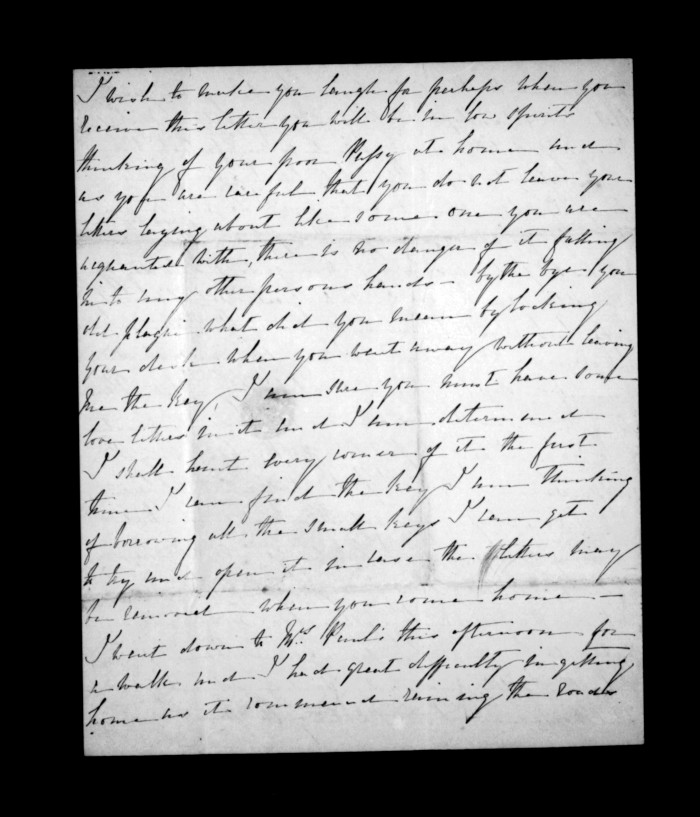 I wish to make you laugh for perhaps when you
receive this letter you will be in low spirits
thinking of your poor Pussy at home and
as you are careful that you do not leave your
letters laying about like some one you are
acquainted with, there is no danger of it falling
in to any other persons hands - by the bye you
old plague what did you mean by locking
your desk when you went away without leaving
me the key, I am sure you must have some
love letters in it and I am determined
I shall hunt every corner of it the first
time I can find the key I am thinking
of borrowing all the small keys I can get
to try and open it in case the letters may
be removed when you come home -
I went down to Mrs this afternoon for
a walk and I had great difficulty in getting
home as it commenced raining the roads